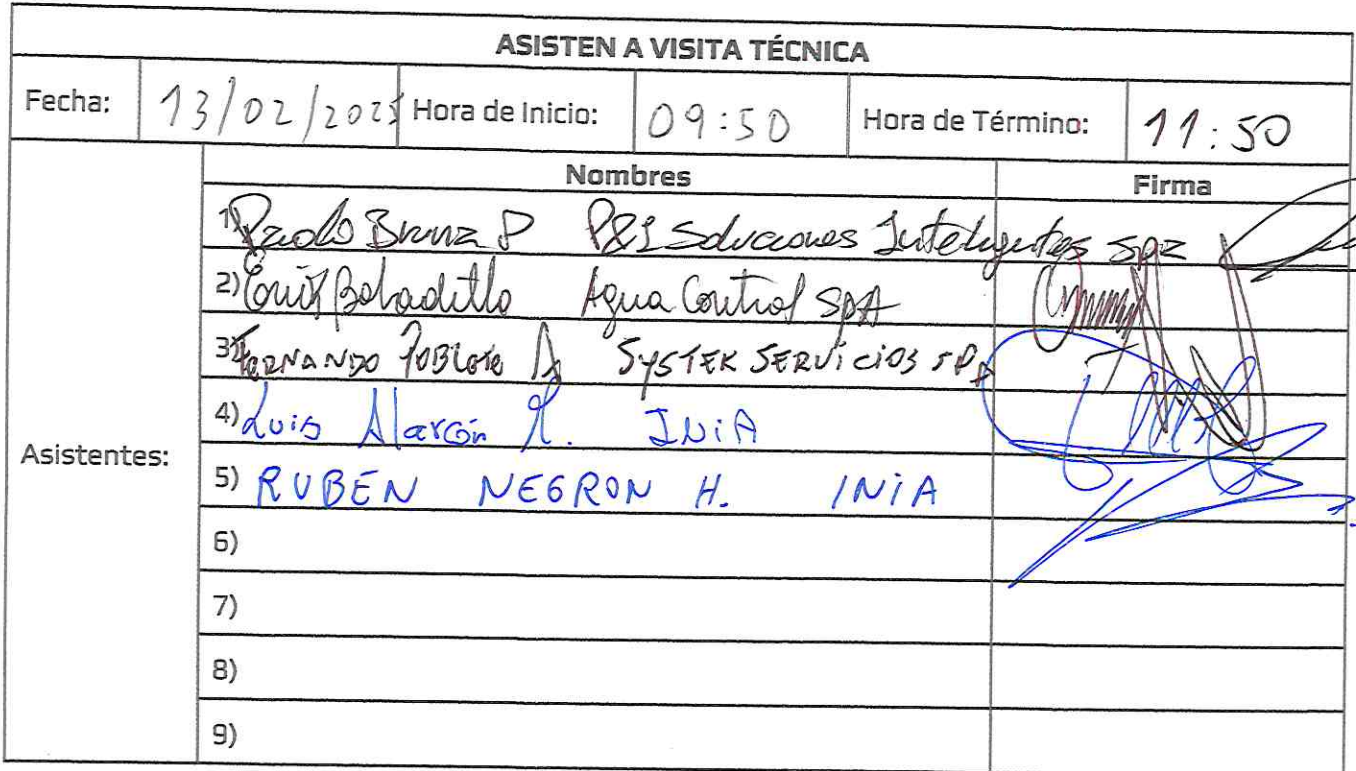 ASISTEN A VISITA TÉCNICA
Fecha: 13/02/2025 Hora de Inicio: 09:50 Hora de Término: 11:50
Nombres Firma
1) Paolo P P&I Soluciones Inteligentes SPA
2) Bobadilla Agua Control SPA
3) FERNANDO POBLETE A SYSTEK SERVICIOS SPA
4) Luis Alarcón R. INIA
Asistentes:
5) RUBÉN NEGRON H. INIA
6)
7)
8)
9)